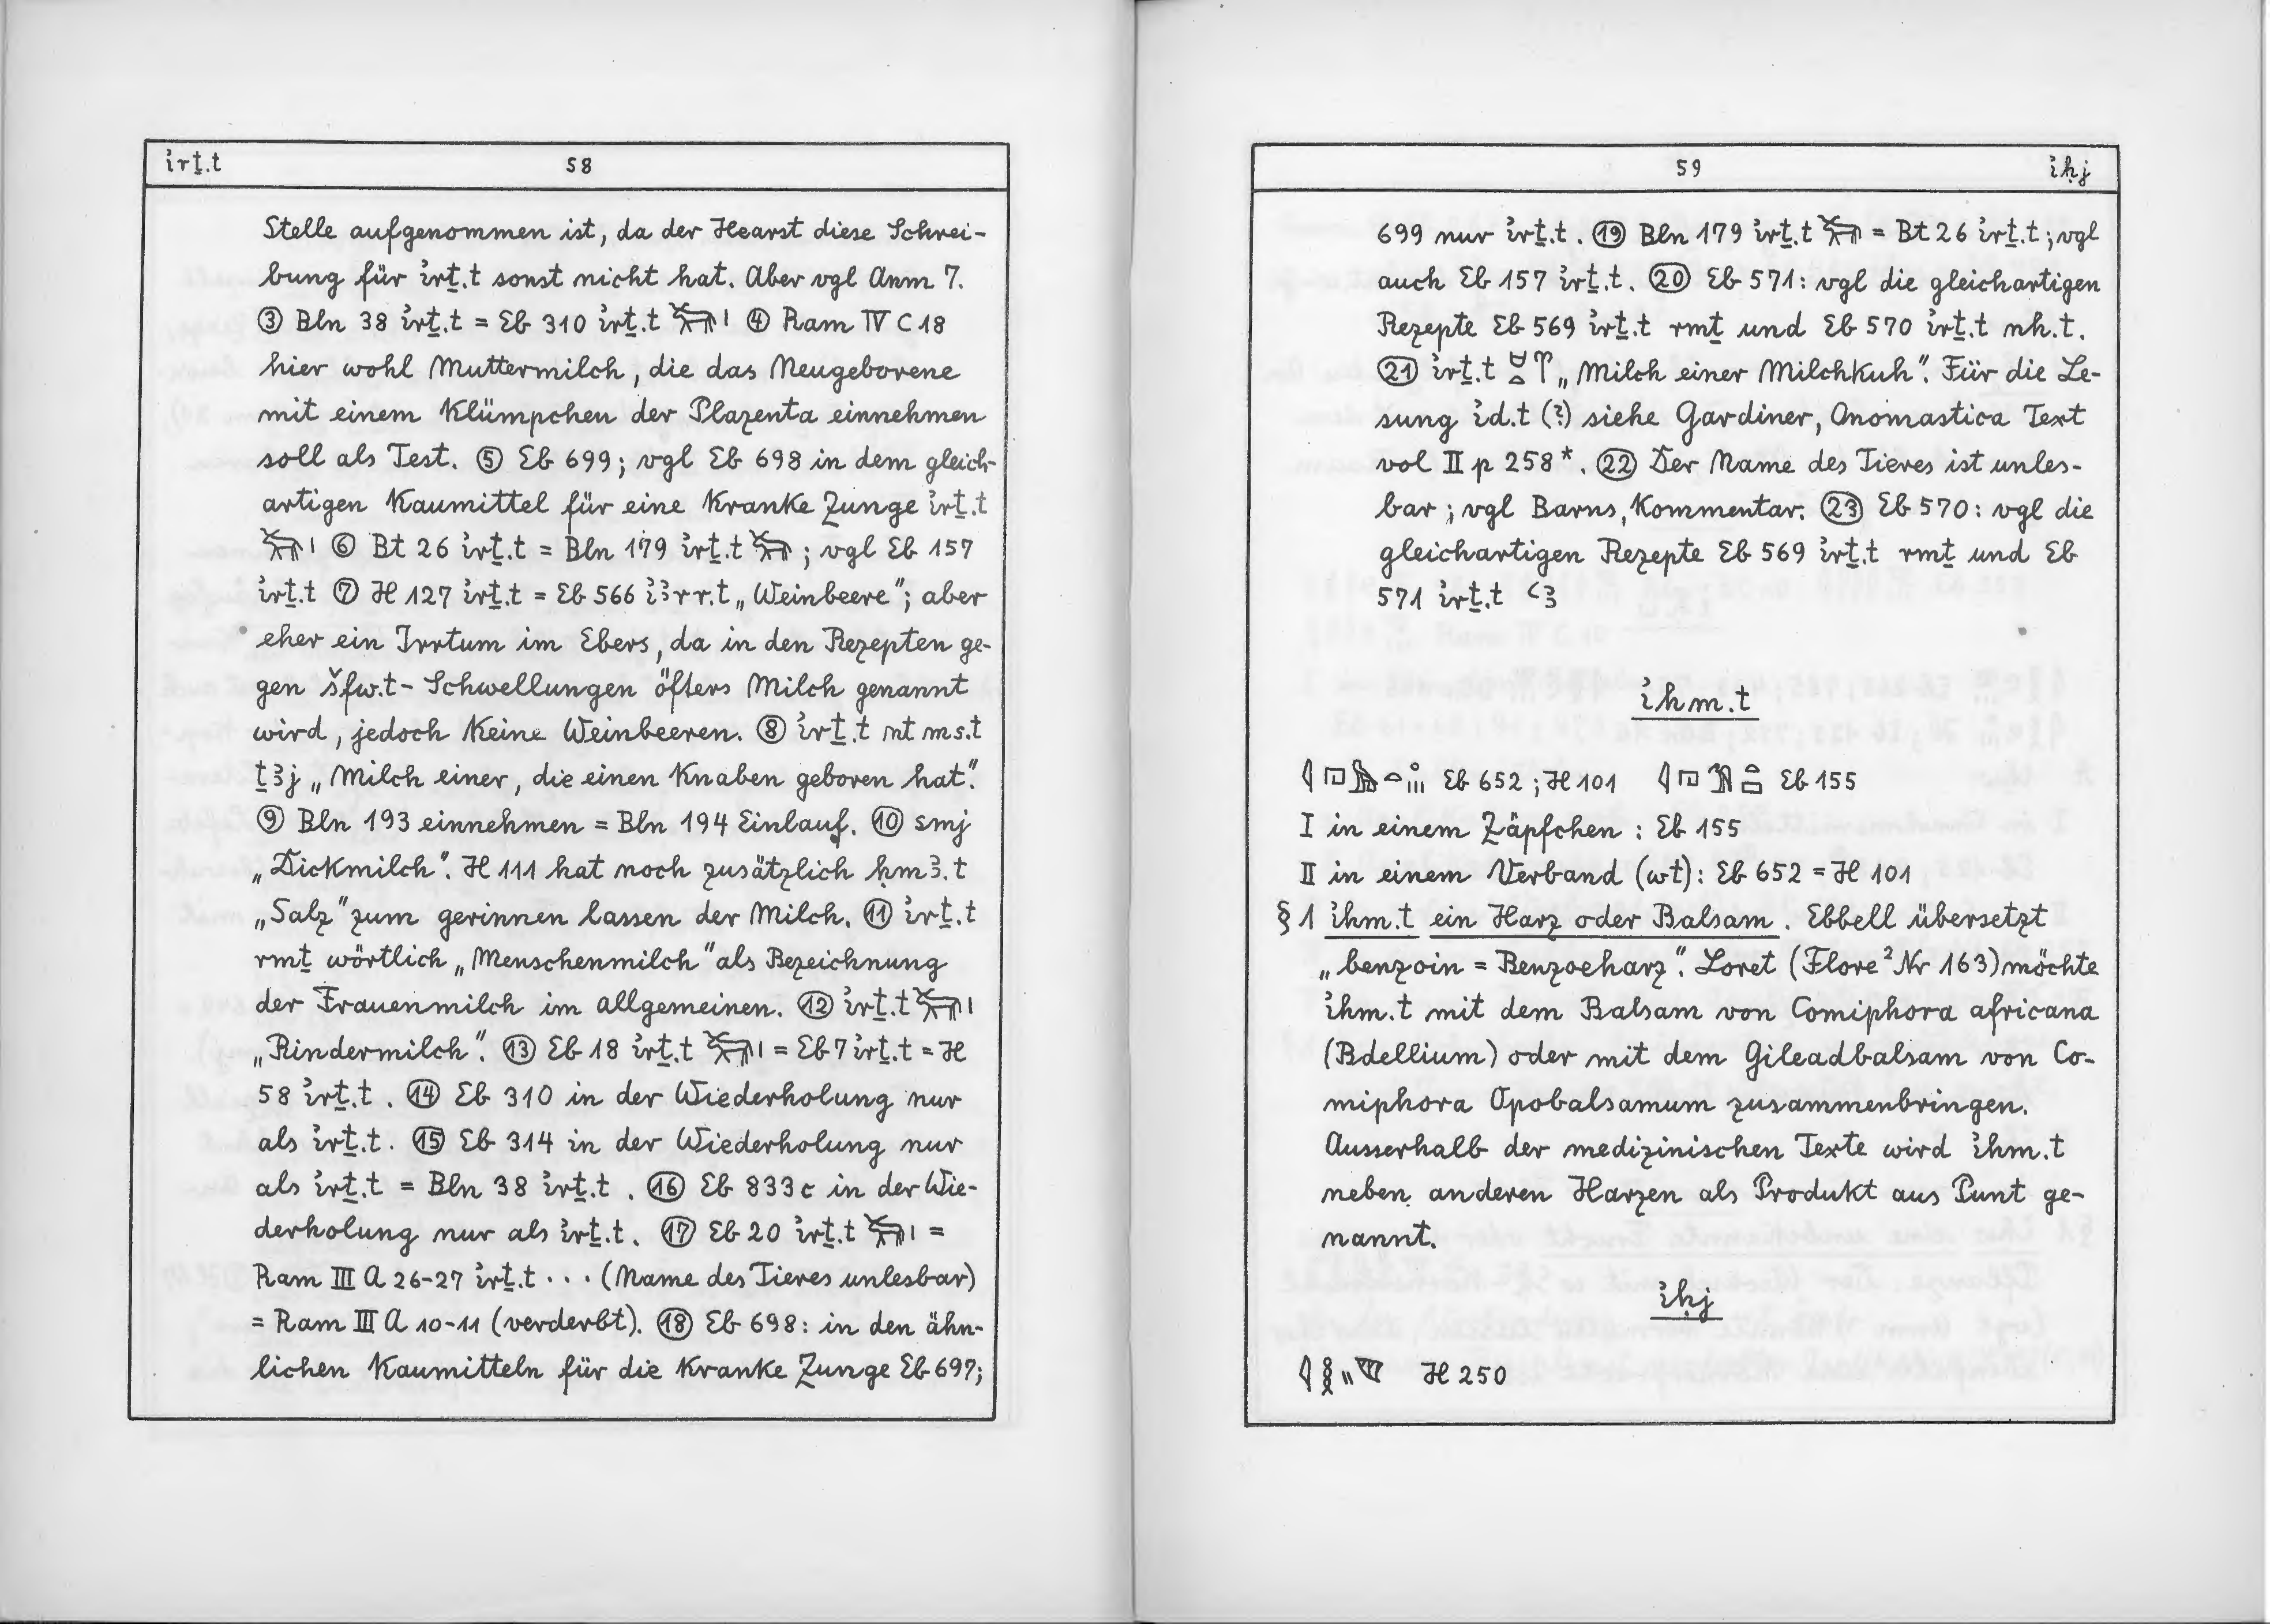 irṯ.t 58
Stelle aufgenommen ist, da der Hearst diese Schrei-
bung für irṯ.t sonst nicht hat. Aber vgl Anm 7.
③ Bln 38 irṯ.t = Eb 310 irṯ.t 𓃒𓏤 ④ Ram IV C 18
hier wohl Muttermilch, die das Neugeborene
mit einem Klümpchen der Plazenta einnehmen
soll als Test. ⑤ Eb 699; vgl Eb 698 in dem gleich-
artigen Kaumittel für eine kranke Zunge irṯ.t
𓃒𓏤 ⑥ Bt 26 irṯ.t = Bln 179 irṯ.t 𓃒; vgl Eb 157
irṯ.t ⑦ H 127 irṯ.t = Eb 566 iꜣrr.t „Weinbeere"; aber
eher ein Irrtum im Ebers, da in den Rezepten ge-
gen šfw.t-Schwellungen öfters Milch genannt
wird, jedoch keine Weinbeeren. ⑧ irṯ.t nt ms.t
ṯꜣj „Milch einer, die einen Knaben geboren hat".
⑨ Bln 193 einnehmen = Bln 194 Einlauf. ⑩ smj
„Dickmilch". H 111 hat noch zusätzlich ḥmꜣ.t
„Salz" zum gerinnen lassen der Milch. ⑪ irṯ.t
rmṯ wörtlich „Menschenmilch" als Bezeichnung
der Frauenmilch im allgemeinen. ⑫ irṯ.t 𓃒𓏤
„Rindermilch". ⑬ Eb 18 irṯ.t 𓃒𓏤 = Eb 7 irṯ.t = H
58 irṯ.t. ⑭ Eb 310 in der Wiederholung nur
als irṯ.t. ⑮ Eb 314 in der Wiederholung nur
als irṯ.t = Bln 38 irṯ.t. ⑯ Eb 833c in der Wie-
derholung nur als irṯ.t. ⑰ Eb 20 irṯ.t 𓃒𓏤 =
Ram III A 26-27 irṯ.t ... (Name des Tieres unlesbar)
= Ram III A 10-11 (verderbt). ⑱ Eb 698: in den ähn-
lichen Kaumitteln für die kranke Zunge Eb 697;
59 iḥj
699 nur irṯ.t. ⑲ Bln 179 irṯ.t 𓃒 = Bt 26 irṯ.t; vgl
auch Eb 157 irṯ.t. ⑳ Eb 571: vgl die gleichartigen
Rezepte Eb 569 irṯ.t rmṯ und Eb 570 irṯ.t nh.t.
㉑ irṯ.t „Milch einer Milchkuh". Für die Le-
sung id.t (?) siehe Gardiner, Onomastica Text
vol II p 258*. ㉒ Der Name des Tieres ist unles-
bar; vgl Barns, Kommentar. ㉓ Eb 570: vgl die
gleichartigen Rezepte Eb 569 irṯ.t rmṯ und Eb
571 irṯ.t ꜥꜣ
ihm.t
Eb 652; H 101 Eb 155
I in einem Zäpfchen: Eb 155
II in einem Verband (wt): Eb 652 = H 101
§ 1 ihm.t ein Harz oder Balsam. Ebbell übersetzt
„benzoin = Benzoeharz". Loret (Flore² Nr 163) möchte
ihm.t mit dem Balsam von Comiphora africana
(Bdellium) oder mit dem Gileadbalsam von Co-
miphora Opobalsamum zusammenbringen.
Ausserhalb der medizinischen Texte wird ihm.t
neben anderen Harzen als Produkt aus Punt ge-
nannt.
iḥj
H 250